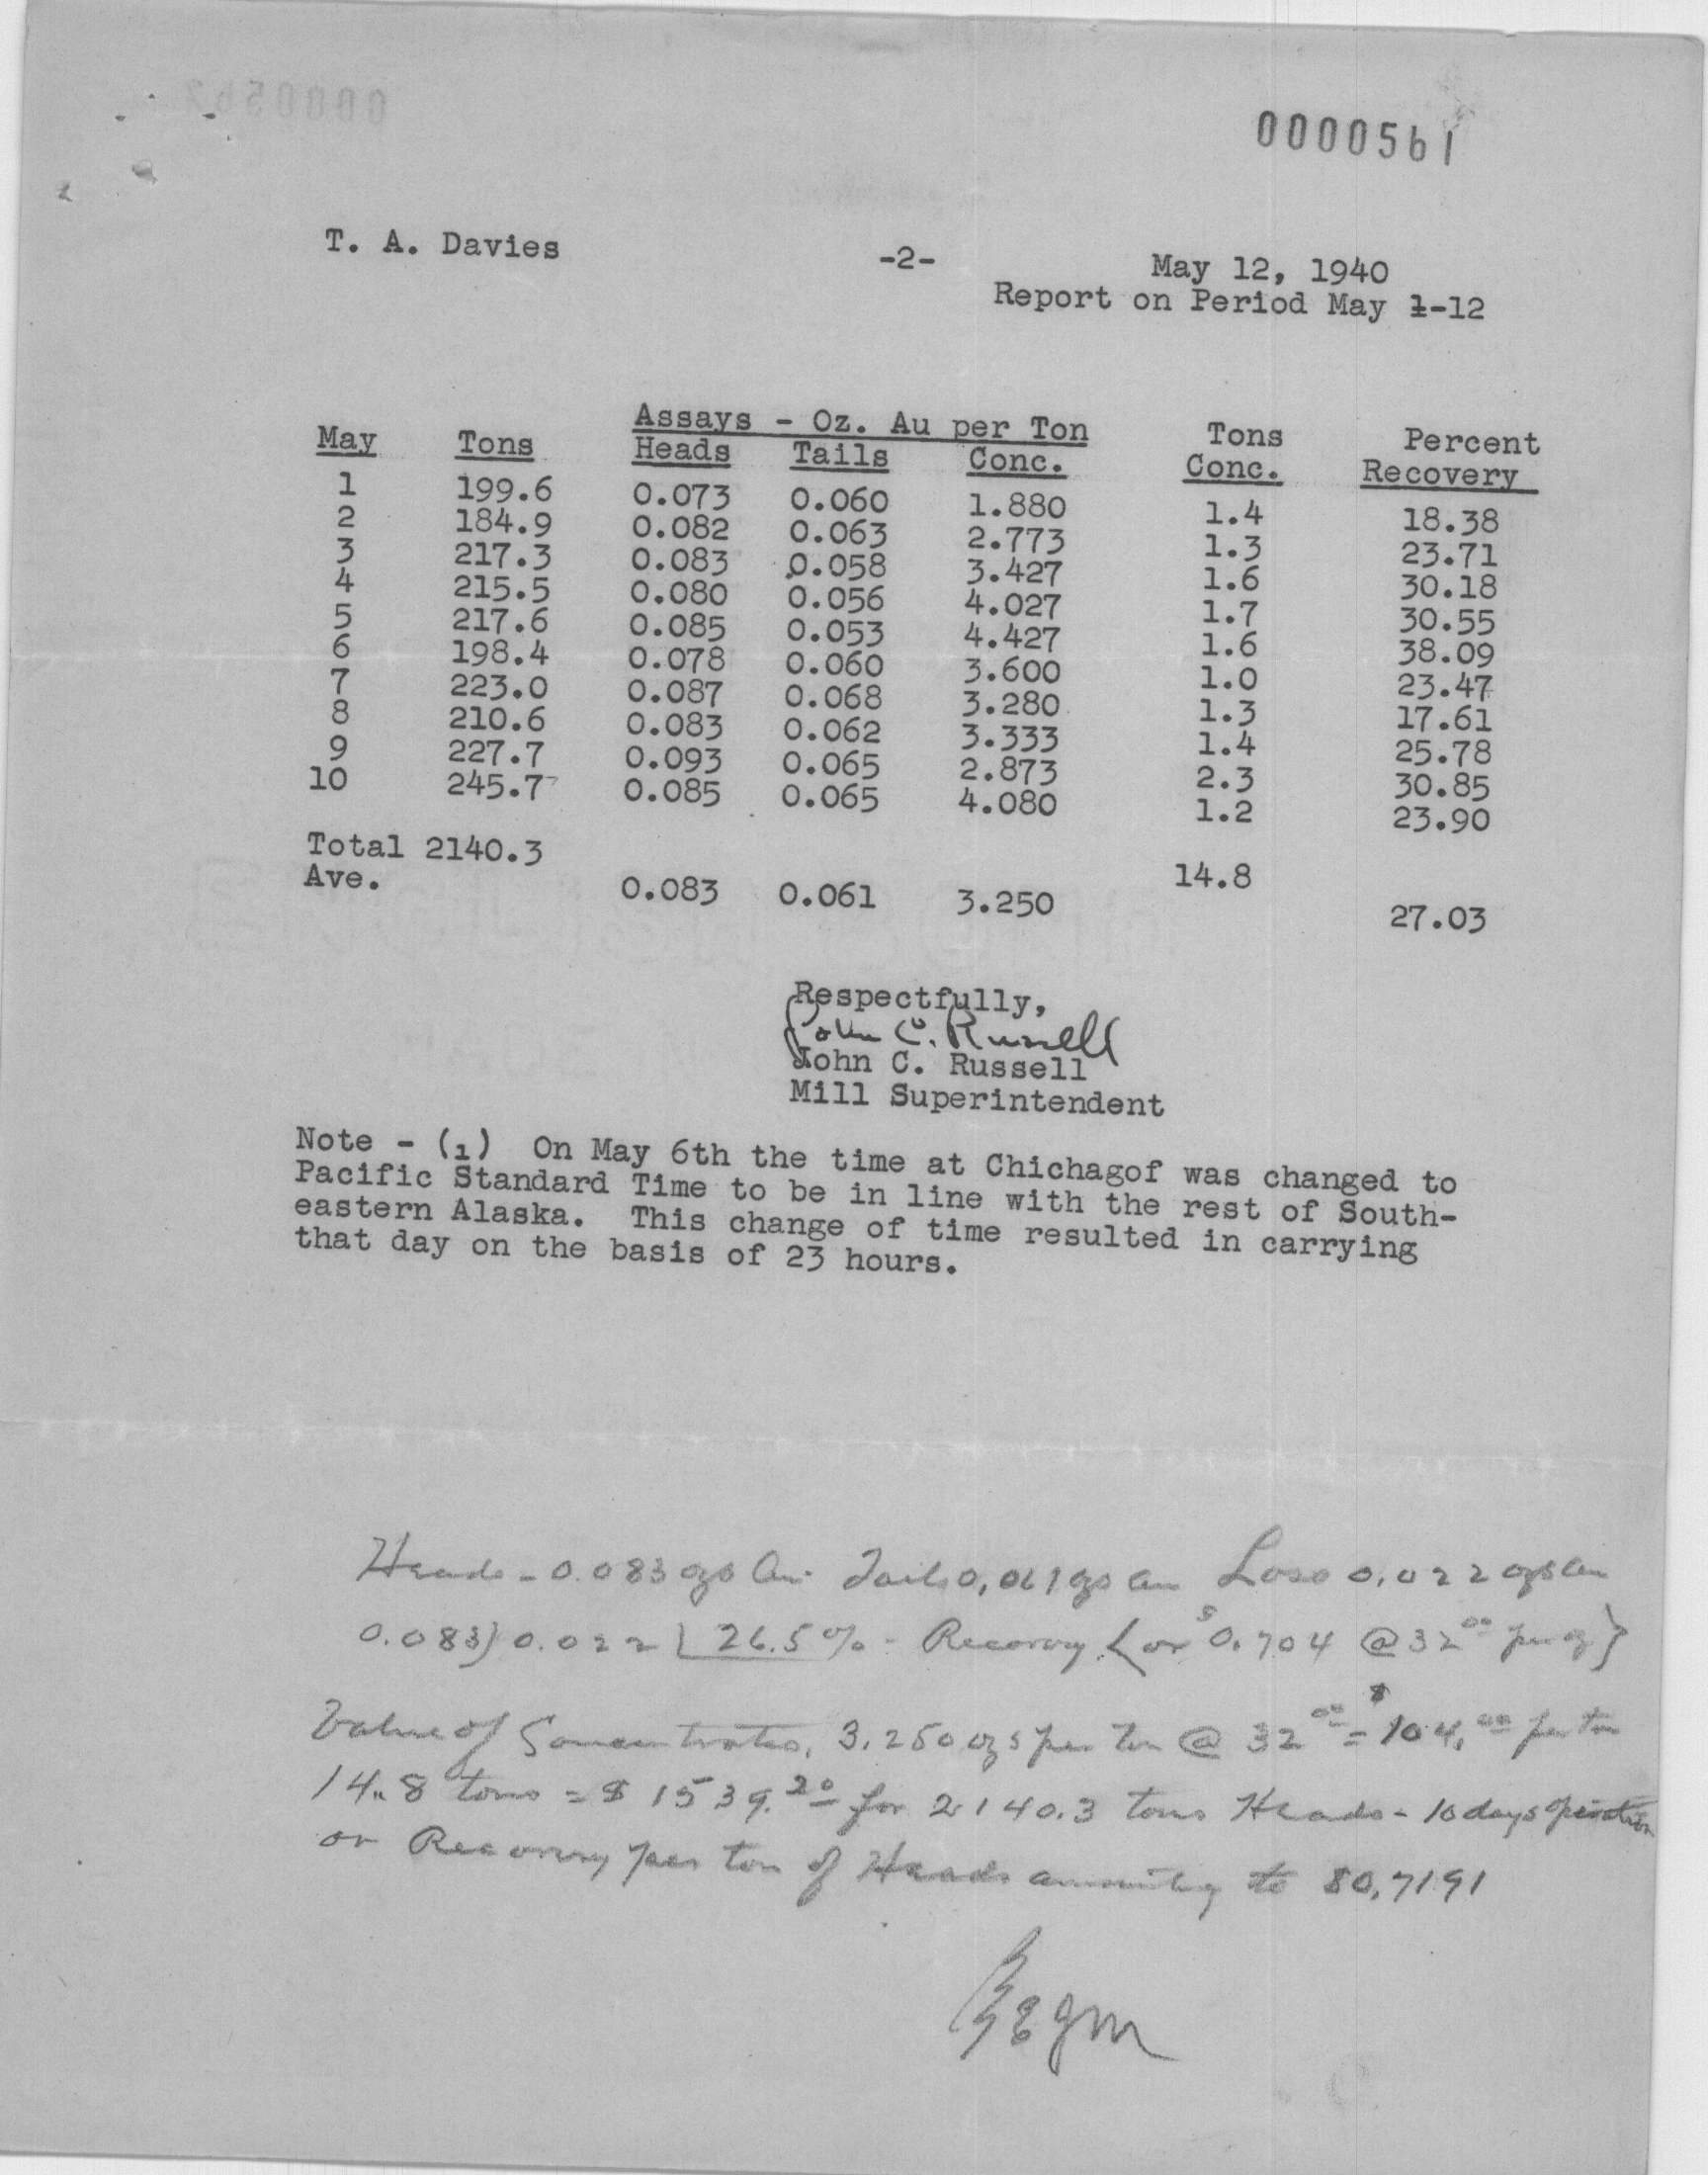 0000561
T. A. Davies -2- May 12, 1940
Report on Period May 1-12
Assays - Oz. Au per Ton Tons Percent
May Tons Heads Tails Conc. Conc. Recovery
1 199.6 0.073 0.060 1.880 1.4 18.38
2 184.9 0.082 0.063 2.773 1.3 23.71
3 217.3 0.083 0.058 3.427 1.6 30.18
4 215.5 0.080 0.056 4.027 1.7 30.55
5 217.6 0.085 0.053 4.427 1.6 38.09
6 198.4 0.078 0.060 3.600 1.0 23.47
7 223.0 0.087 0.068 3.280 1.3 17.61
8 210.6 0.083 0.062 3.333 1.4 25.78
9 227.7 0.093 0.065 2.873 2.3 30.85
10 245.7 0.085 0.065 4.080 1.2 23.90
Total 2140.3 14.8
Ave. 0.083 0.061 3.250 27.03
Respectfully,
John C. Russell
John C. Russell
Mill Superintendent
Note - (1) On May 6th the time at Chichagof was changed to
Pacific Standard Time to be in line with the rest of South-
eastern Alaska. This change of time resulted in carrying
that day on the basis of 23 hours.
Heads - 0.083 ozs Au Tails 0.061 ozs Au Loss 0.022 ozs Au
0.083) 0.022 | 26.5% - Recovery (or $0.704 @ 32 00 per oz)
Value of Concentrates, 3.250 ozs per ton @ 32 00 = $104.00 per ton
14.8 tons = $1539.20 for 2140.3 tons Heads - 10 days operation
or Recovery per ton of Heads amounting to $0.7191